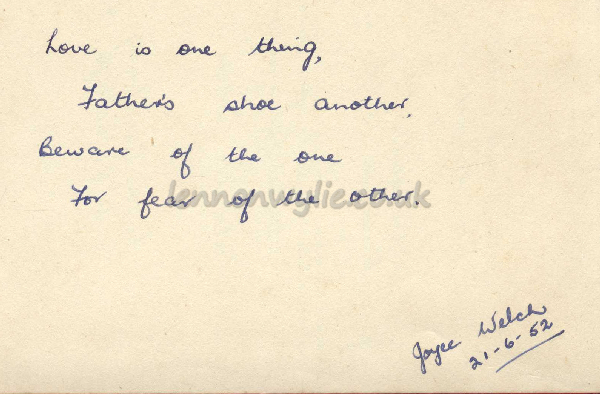 Love is one thing,
Father's shoe another,
Beware of the one
For fear of the other.
lennonwylie.co.uk
Joyce Welch
21-6-52